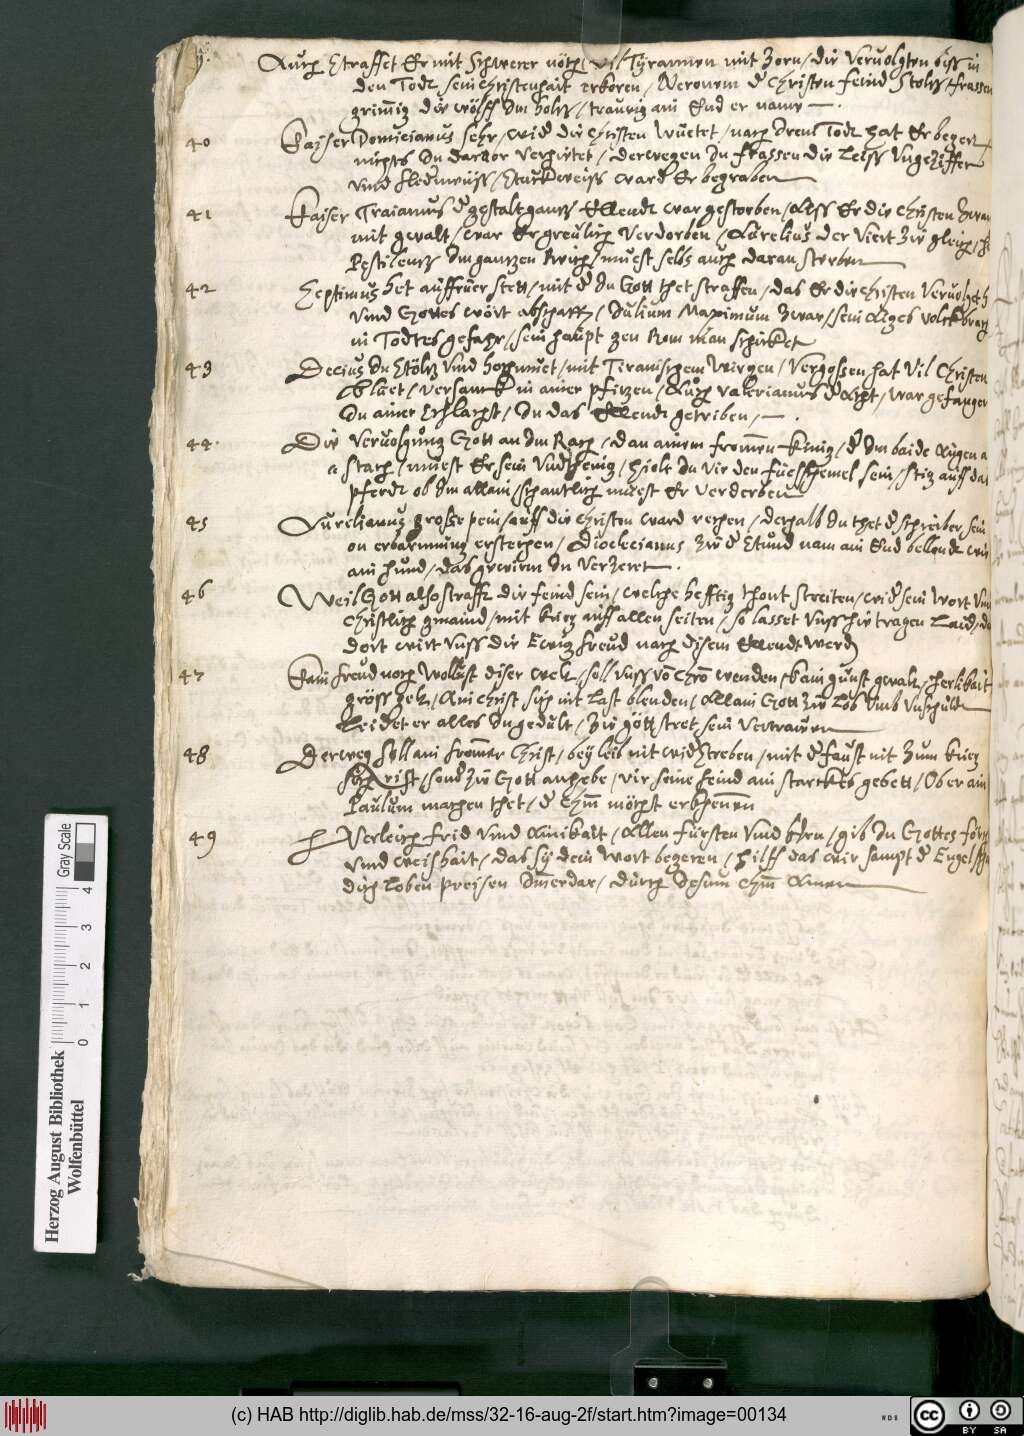 Auch strafft Er mit schwerer nöth, vil Tyrannen mit Zorn, die Veruolgten biss in
den Todt sein Christenhait erkoren, Neronem der Christen feind Stoltz, frassen
grimmig die wölff Im holtz, traurig ain End er nam.
40 Kaiser Domicianus sehr, wider die Christen Wüetet, nach drem Todt hat Er begert
nichts In daruor verhüetet, derwegen In frassen die Leiss Ungeziffer
und fledermüss, Stuckweiss ward Er begraben
41 Kaiser Traianus der gestalt gantz Ellendt war gestorben, Alss Er die Christen Zwang
mit gewalt, war Er greulich verdorben, Aurelius der Viert Zu gleich,
Pestilentz Im gantzen Reich, muest selbs auch daran sterben
42 Septimus het auffruer stett, mit der In Gott thet straffen, das Er die Christen Veruolget
vnd Gottes wort abschaff, Iulium Maximum Zwar, sein Aiges volck bracht
in Todtes gefahr, sein haupt gen Rom man schicket
43 Decius In Stoltz und hochmuet, mit Tiranischem Wirgen, Vergossen hat Vil Christen
Bluet, versanck in ainer pfitzen, Auch Valerianus der Acht, war gefangen
In ainer Schlacht, In das Ellendt getriben,
44. Die Veruolgung Gott an Im Rach, dan ainem frommen Kinig, der Im baide Augen a
stach, muest Er sein Underthenig, hielt In vir den fuesschemel sein, stig auff das
pferdt ob Im allain, schantlich muest Er verderben
45 Aurelianus grosse pein, auff die Christen ward rechen, derhalb In thet der schreiber sein
on erbarmung erstechen, Diocletianus Zu der Stund nam ain End bellendt wie
ain hund, das gewirm In verzeret.
46 Weil Gott also strafft die feind sein, welche hefftig thont streiten, wider sein wort Und
Christlich gmaind, mit krieg auff allen seiten, so lasset Unss hie tragen Laid, da
dort wirt Unss die Ewig freud nach disem Ellendt werden
47 Kain freud noch Wollust diser welt, soll Unss von Christo wenden, kain gunst gwalt, herlikait
gross gelt, Ain Christ sich nit Last blenden, Allain Gott Zu Lob Umb Unschuld
Leidet er alles In gedult, Zu gott stret sein Vertrawen
48 Derweg soll ain frommer Christ, bey leib nit widerstreben, mit der faust nit Zum krieg
sich rist, sonder Zu Gott anhebe, vir seine feind ain starckes gebett, Ob er ain
Paulum machen thet, der Ihm möcht erkhennen
49 Verleich frid Und Ainikait, Allen fürsten Und hern, gib In Gottes forcht
und weishait, das sy dein Wort begeren, hilff das wir sampt der Engel scha
dich Loben preisen Immerdar, durch Iesum Christum Amen
Gray Scale
0 1 2 3 4
Herzog August Bibliothek
Wolfenbüttel
(c) HAB http://diglib.hab.de/mss/32-16-aug-2f/start.htm?image=00134
WDB
CC BY SA